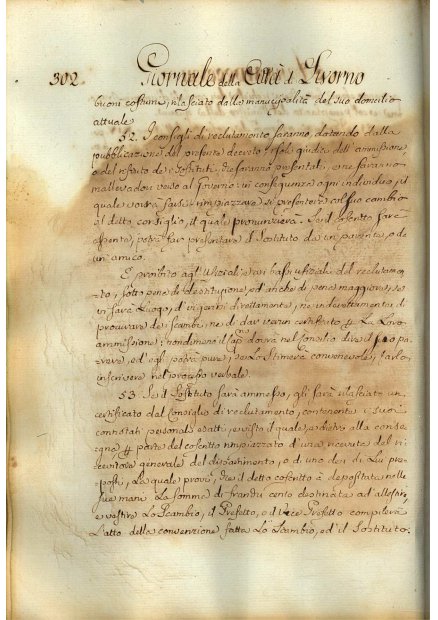 302 Giornale della Città di Livorno
buoni costumi, rilasciato dalle municipalità del suo domicilio
attuale.
52. I consigli di reclutamento saranno, datando dalla
pubblicazione del presente decreto, i soli giudici dell'ammissione
o del rifiuto de' sostituti, che saranno presentati, e ne saranno
mallevadori verso al governo: in conseguenza ogni individuo, il
quale vorrà farsi rimpiazzare si presenterà col suo cambio
al detto consiglio, il quale pronunzierà. Se il coscritto sarà
assente, potrà far presentare il sostituto da un parente, o da
un amico.
È proibito agl' Ufiziali, e ai bassi ufiziali del reclutamen-
-to, sotto pena di destituzione, ed anche di pene maggiori, se
vi sarà luogo, d'ingerirsi direttamente, nè indirettamente di
procurare de' scambi, ne di dar verun certificato La Loro
ammissione: nondimeno il Cap. dovrà nel consilio dire il suo pa-
rere, ed egli potrà pure, se Lo Stimerà convenevole, farlo
inscrivere nel processo verbale.
53. Se il Sostituto sarà ammesso, gli sarà rilasciato un
certificato dal Consiglio di reclutamento, contenente i suoi
connotati personali esatti, e visto il quale, e dietro alla conse-
gna, parte del coscritto rimpiazzato d'una ricevuta del ri-
cevitore generale del dipartimento, o di uno dei di Lui pre-
posti, La quale provi, che il detto coscritto à depositata nelle
sue mani La somma di franchi cento destinata ad allestire,
e vestire Lo Scambio, il Prefetto, o il Vice Prefetto compilerà
L'atto della convenzione fatta Lo Scambio, ed il Sostituto.